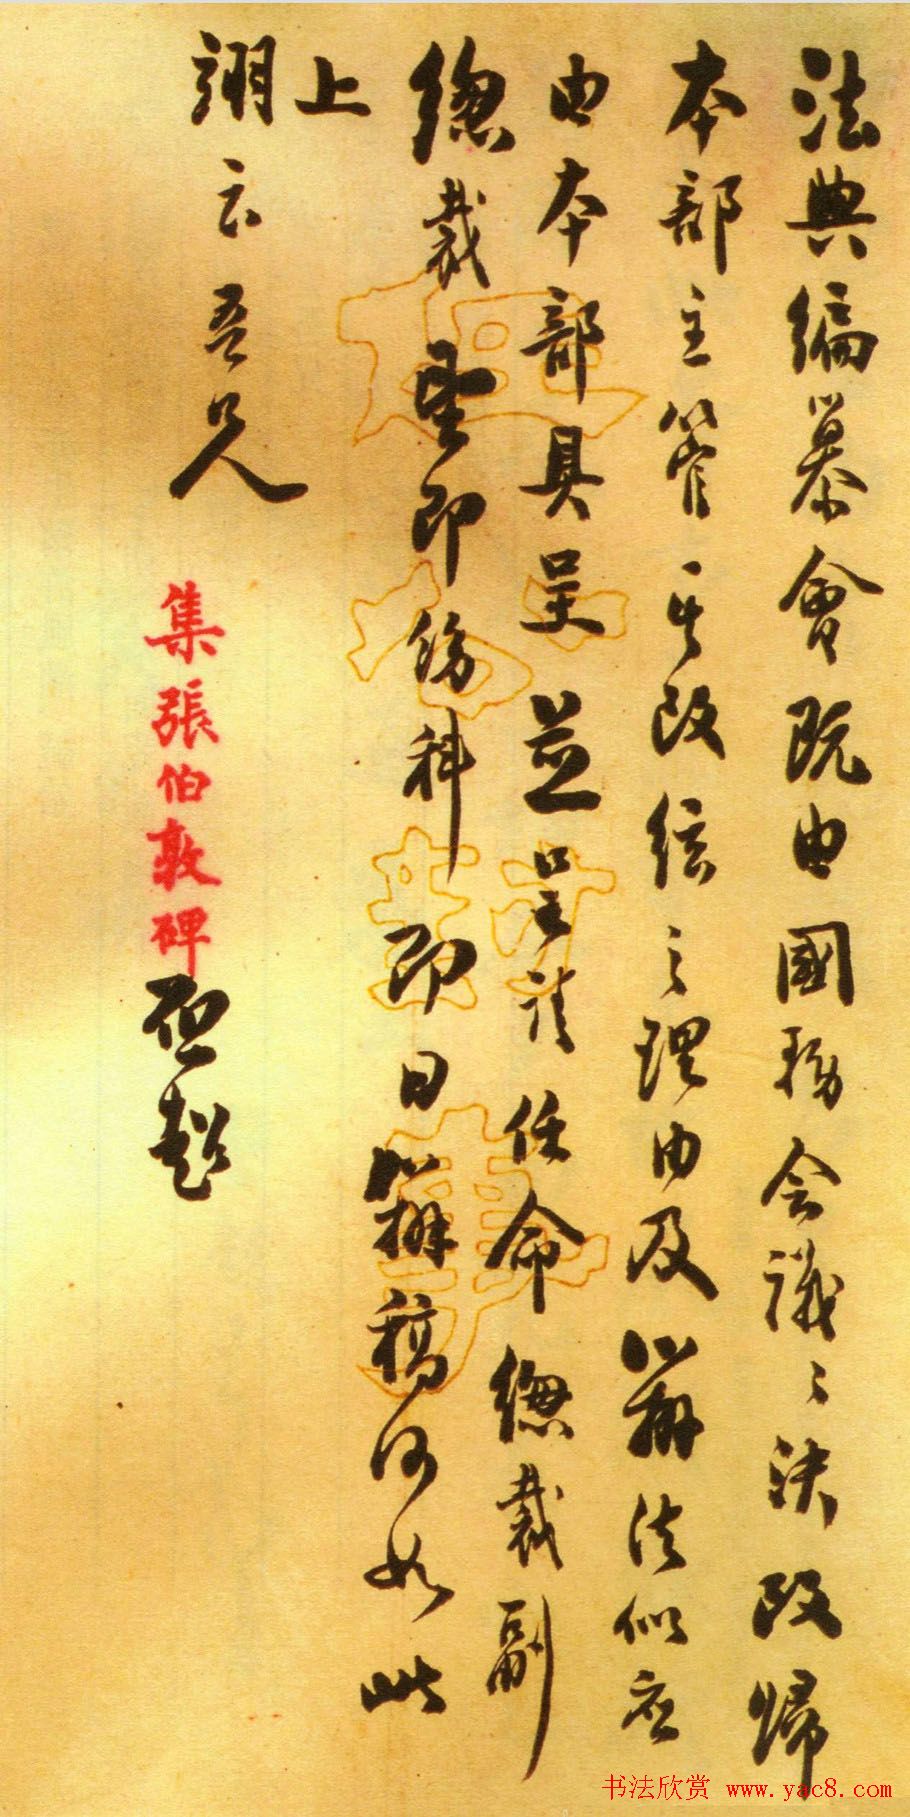 法典編纂會既由國務会議〻決改歸
本部主管其改絃之理由及辦法似应
由本部具呈並呈請任命總裁副
總裁望即飭科即日辦稿何如此
上
翊云吾兄
集張伯敦碑
啟超
书法欣赏 www.yac8.com